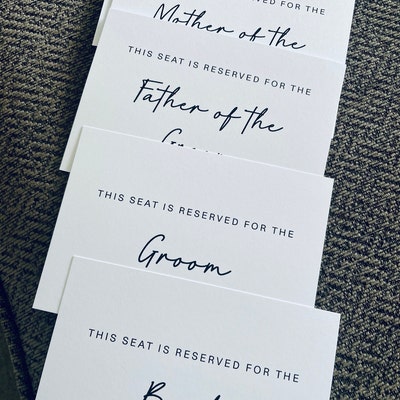 RESERVED FOR THE
Mother of the
THIS SEAT IS RESERVED FOR THE
Father of the
THIS SEAT IS RESERVED FOR THE
Groom
THIS SEAT IS RESERVED FOR THE